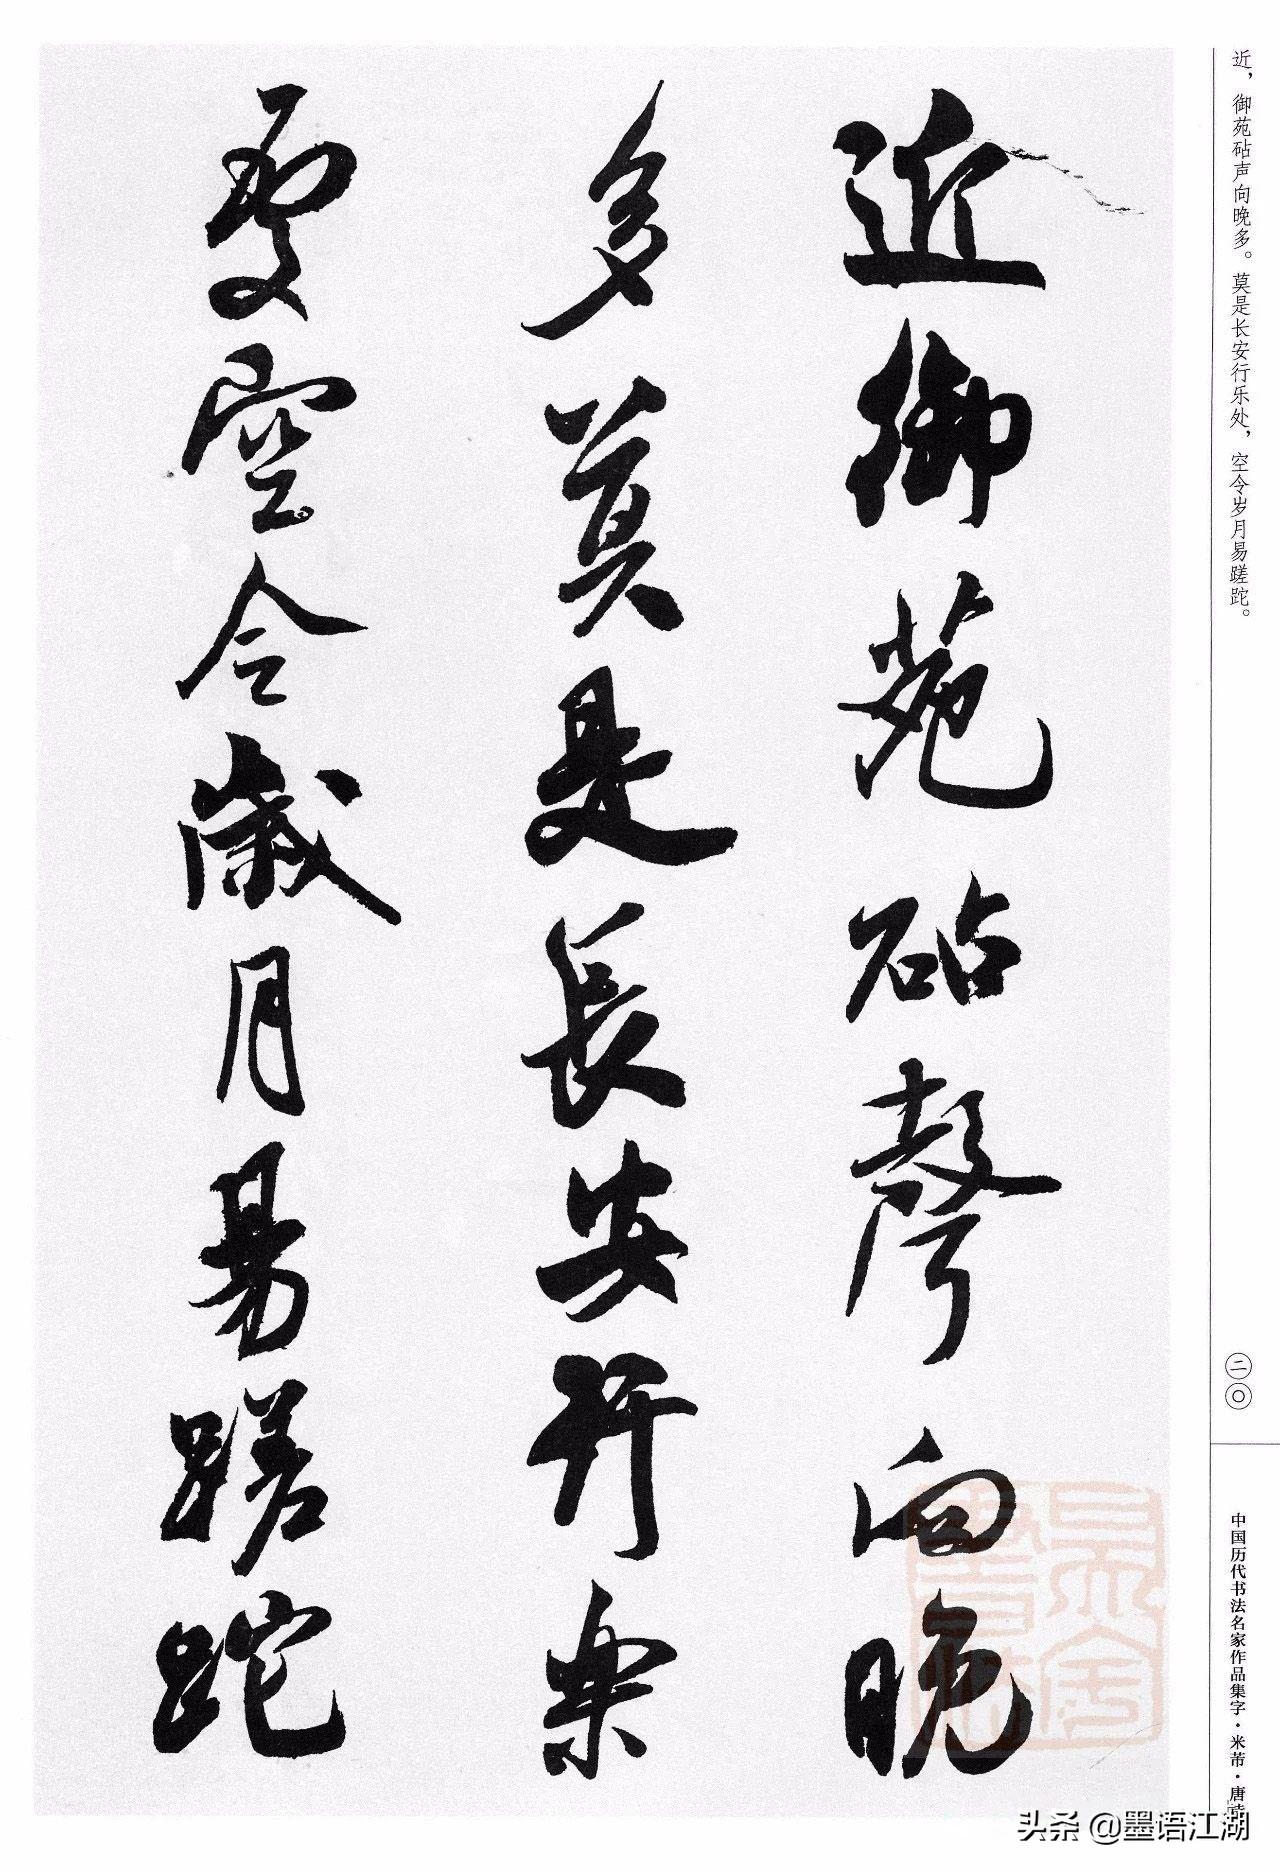 近，御苑砧声向晚多。莫是长安行乐处，空令岁月易蹉跎。
近御苑砧聲向晚
多莫是長安行樂
處空令歲月易蹉跎
二〇
中国历代书法名家作品集字·米芾·唐
头条 @墨语江湖